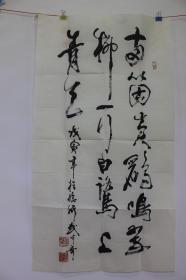 两个黄鹂鸣翠
柳一行白鹭上
青天 戊寅年